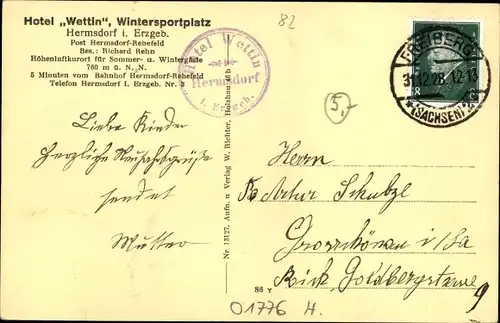 Hotel „Wettin", Wintersportplatz
Hermsdorf i. Erzgeb.
Post Hermsdorf-Rehefeld
Bes.: Richard Rehn
Höhenluftkurort für Sommer- u. Wintergäste
780 m ü. N., N.
5 Minuten vom Bahnhof Hermsdorf-Rehefeld
Telefon Hermsdorf i. Erzgeb. Nr. 3
82
Hotel Wettin
Hermsdorf
i. Erzgeb.
5,-
FREIBERG
31.12.28.12-13
*(SACHSEN)2
Liebe Kinder
Herzliche Neujahrsgrüße
sendet
Mutter
Nr. 13127. Aufn. u Verlag W. Richter, Holzhau
Herrn
Artur Schubze
Grossschönau i/Sa
Goldbergstr
9
86 Y
O1776 H.